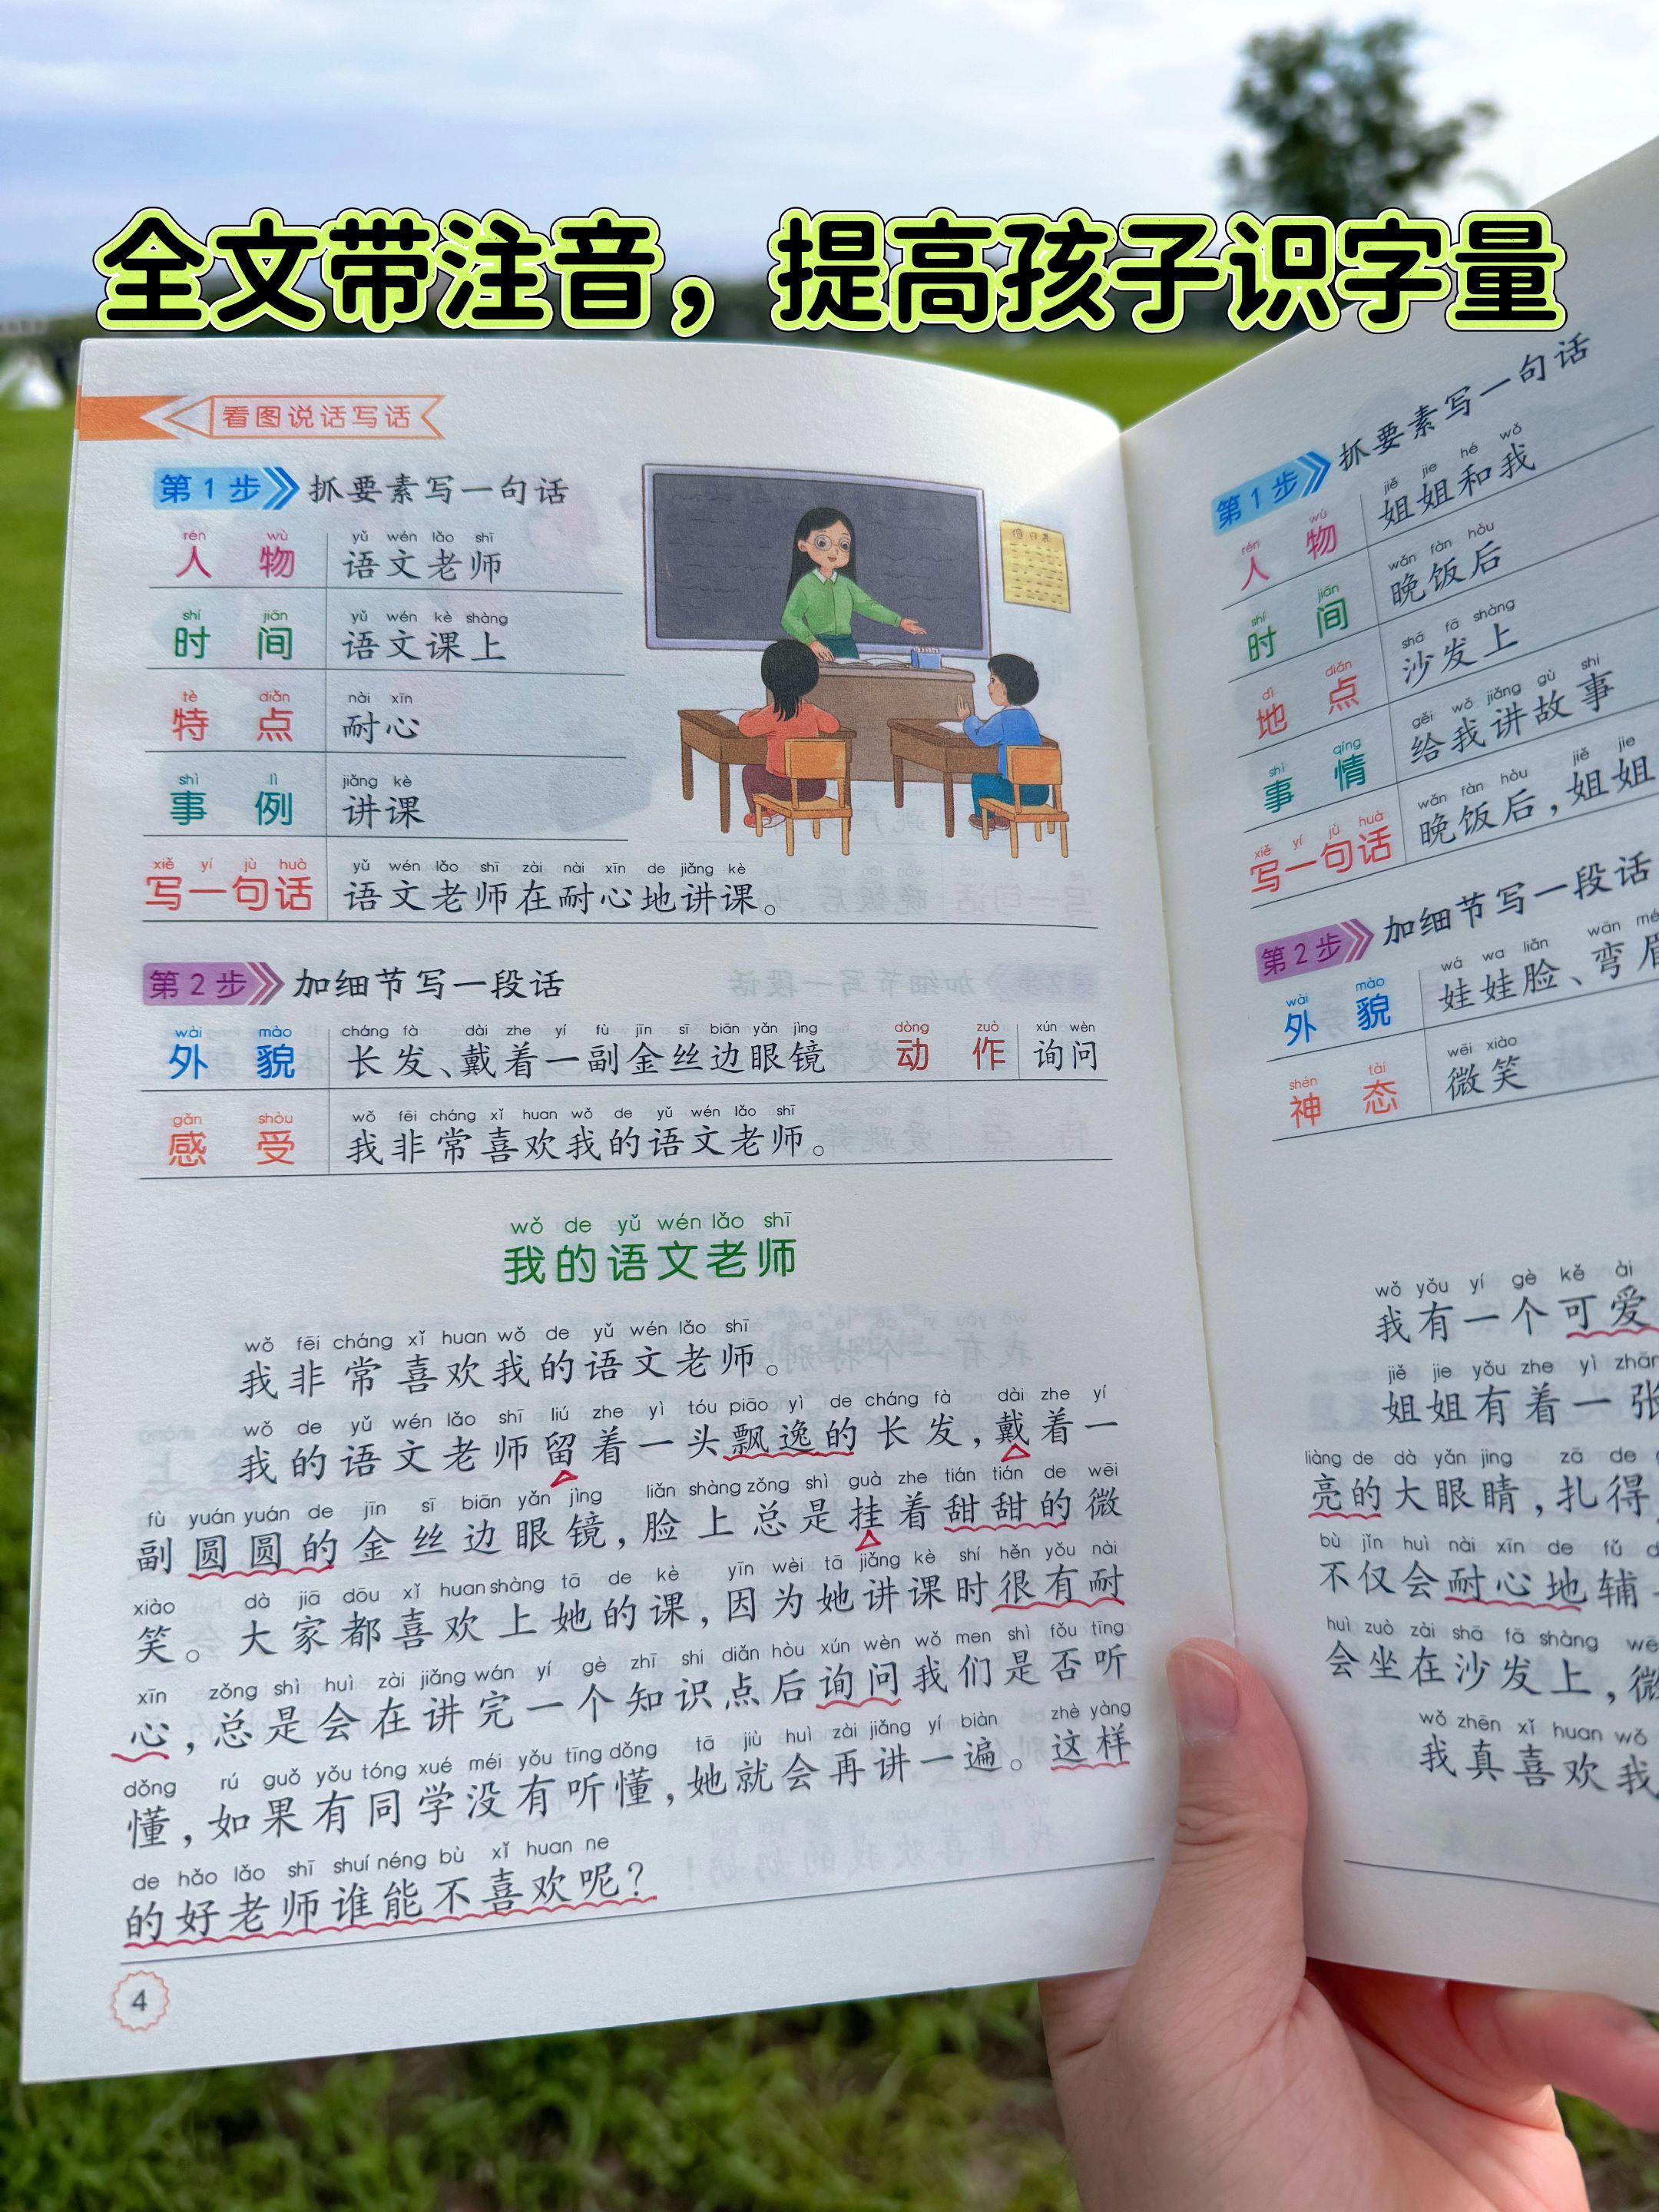 全文带注音，提高孩子识字量
看图说话写话
第1步 抓要素写一句话
rén wù yǔ wén lǎo shī
人物 语文老师
shí jiān yǔ wén kè shàng
时间 语文课上
tè diǎn nài xīn
特点 耐心
shì lì jiǎng kè
事例 讲课
xiě yí jù huà yǔ wén lǎo shī zài nài xīn de jiǎng kè
写一句话 语文老师在耐心地讲课。
第2步 加细节写一段话
wài mào cháng fà dài zhe yí fù jīn sī biān yǎn jìng dòng zuò xún wèn
外貌 长发、戴着一副金丝边眼镜 动作 询问
gǎn shòu wǒ fēi cháng xǐ huan wǒ de yǔ wén lǎo shī
感受 我非常喜欢我的语文老师。
wǒ de yǔ wén lǎo shī
我的语文老师
wǒ fēi cháng xǐ huan wǒ de yǔ wén lǎo shī
我非常喜欢我的语文老师。
wǒ de yǔ wén lǎo shī liú zhe yì tóu piāo yì de cháng fà dài zhe yí
我的语文老师留着一头飘逸的长发，戴着一
fù yuán yuán de jīn sī biān yǎn jìng liǎn shàng zǒng shì guà zhe tián tián de wēi
副圆圆的金丝边眼镜，脸上总是挂着甜甜的微
xiào dà jiā dōu xǐ huan shàng tā de kè yīn wèi tā jiǎng kè shí hěn yǒu nài
笑。大家都喜欢上她的课，因为她讲课时很有耐
xīn zǒng shì huì zài jiǎng wán yí gè zhī shi diǎn hòu xún wèn wǒ men shì fǒu tīng
心，总是会在讲完一个知识点后询问我们是否听
dǒng rú guǒ yǒu tóng xué méi yǒu tīng dǒng tā jiù huì zài jiǎng yí biàn zhè yàng
懂，如果有同学没有听懂，她就会再讲一遍。这样
de hǎo lǎo shī shuí néng bù xǐ huan ne
的好老师谁能不喜欢呢？
4
第1步 抓要素写一句话
rén wù jiě jie hé wǒ
人物 姐姐和我
shí jiān wǎn fàn hòu
时间 晚饭后
dì diǎn shā fā shàng
地点 沙发上
shì qíng gěi wǒ jiǎng gù shi
事情 给我讲故事
xiě yí jù huà wǎn fàn hòu jiě jie
写一句话 晚饭后，姐姐
第2步 加细节写一段话
wài mào wá wa liǎn wān mé
外貌 娃娃脸、弯眉
shén tài wēi xiào
神态 微笑
wǒ yǒu yí gè kě ài
我有一个可爱
jiě jie yǒu zhe yì zhāng
姐姐有着一张
liàng de dà yǎn jing zā de
亮的大眼睛，扎得
bù jǐn huì nài xīn de fǔ
不仅会耐心地辅
huì zuò zài shā fā shàng wē
会坐在沙发上，微
wǒ zhēn xǐ huan wǒ
我真喜欢我